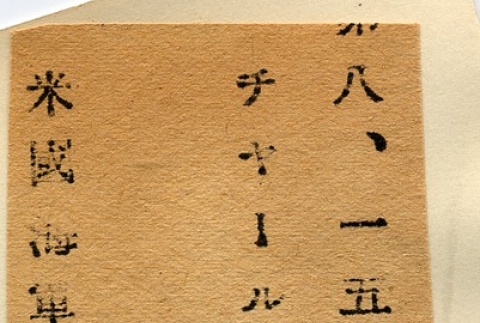 八、一五
チヤール
米國海軍